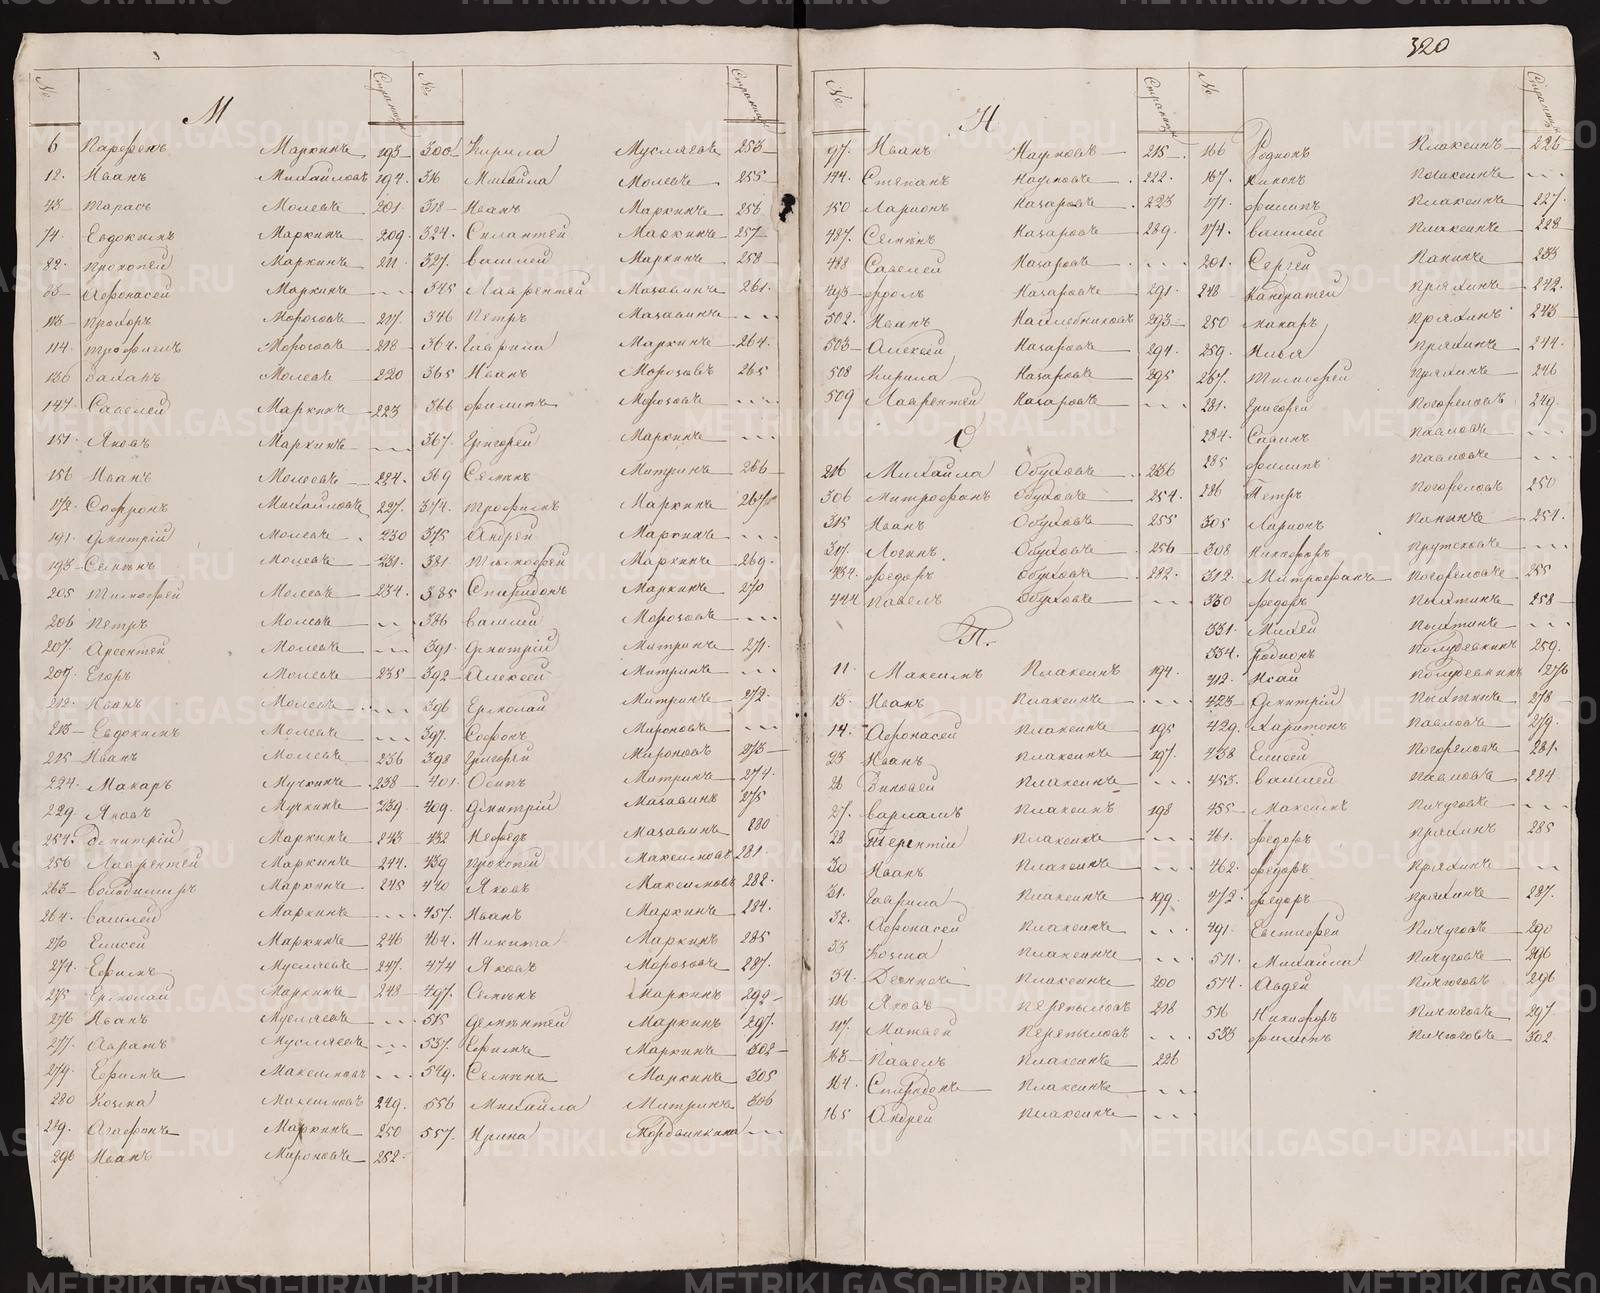 320
№ М Страницы
6 Парфенъ Маркинъ 193
12. Иванъ Михайловъ 194.
43 Тарасъ Молевъ 201
74 Евдокимъ Маркинъ 209.
82. Прокопей Маркинъ 211
83 Афонасей Маркинъ ---
113 Прохоръ Морозовъ 217.
114. Трофимъ Морозовъ 218
136 Молевъ 220
147 Савелей Маркинъ 223
151. Яковъ Маркинъ ---
156 Иванъ Молевъ 224.
172. Софронъ Михайловъ 227.
191. Дмитрій Молевъ 230
193 Семенъ Молевъ 231.
205 Тимофей Молевъ 234.
206 Петръ Молевъ ---
207. Арсентей Молевъ ---
209. Егоръ Молевъ 235
212. Иванъ Молевъ ---
213 Евдокимъ Молевъ ---
215 Иванъ Молевъ 236
224. Макаръ Мучкинъ 238
229. Яковъ Мучкинъ 239.
254. Дмитрій Маркинъ 243
256 Лаврентей Маркинъ 244.
263 Володимиръ Маркинъ 245
264. Василей Маркинъ ---
270 Елисей Маркинъ 246
274. Ефимъ Мусляевъ 247.
275 Ермолай Маркинъ 248
276 Иванъ Мусляевъ ---
277. Мусляевъ ---
279. Ефимъ Максимовъ ---
280 Козма Максимовъ 249.
289. Агафонъ Маркинъ 250
296 Иванъ Мироновъ 252
№ Страницы
300 Кирила Мусляевъ 253
316 Михайла Молевъ 255
318 Иванъ Маркинъ 256
324. Силантей Маркинъ 257
327. Василей Маркинъ 258
345 Лаврентей Мазавинъ 261.
346 Петръ Мазавинъ ---
364. Гаврила Маркинъ 264.
365 Иванъ Морозовъ 265
366 Филипъ Морозовъ ---
367. Григорей Маркинъ ---
369 Семенъ Митринъ 266
374. Трофимъ Маркинъ 267
375 Андрей Маркинъ ---
381 Тимофей Маркинъ 269.
385 Спиридонъ Маркинъ 270
386 Василей Морозовъ ---
391. Дмитрій Митринъ 271.
392 Алексей Митринъ ---
396 Ермолай Митринъ 272.
397. Софонъ Мироновъ ---
398 Григорей Мироновъ 273
401. Осипъ Митринъ 274.
409. Дмитрій Мазавинъ 275
432 Нефедъ Мазавинъ 280
439 Прокопей Максимовъ 281.
440 Яковъ Максимовъ 282.
457. Иванъ Маркинъ 284.
464. Никита Маркинъ 285
474 Яковъ Морозовъ 287.
497. Семенъ Маркинъ 292
515 Дементей Маркинъ 297.
537. Ефимъ Маркинъ 302
549. Семенъ Маркинъ 305
556 Михайла Митринъ 306
557. Ирина Мордвинкина ---
№ Н Страницы
97. Иванъ Наумовъ 215
144. Степанъ Наумовъ 222.
150 Ларионъ Назаровъ 223
487. Семенъ Назаровъ 289.
488 Савелей Назаровъ ---
493 Фролъ Назаровъ 291.
502. Иванъ Нахлебниковъ 293
503 Алексей Назаровъ 294.
508 Кирила Назаровъ 295
509 Лаврентей Назаровъ ---
О
216 Михайла Обуховъ 236
306 Митрофанъ Обуховъ 254.
315 Иванъ Обуховъ 255
317. Логинъ Обуховъ 256
434. Федоръ Обуховъ 282.
444 Павелъ Обуховъ ---
П.
11. Максимъ Плаксинъ 194.
13. Иванъ Плаксинъ ---
14. Афонасей Плаксинъ 195
23 Иванъ Плаксинъ 197.
26 Зиновей Плаксинъ ---
27. Варламъ Плаксинъ 198
28 Терентій Плаксинъ ---
30 Иванъ Плаксинъ ---
31. Гаврила Плаксинъ 199.
32. Афонасей Плаксинъ ---
33 Козма Плаксинъ ---
34. Плаксинъ 200
116 Яковъ Перепыловъ 218
117. Матвей Перепыловъ ---
163 Павелъ Плаксинъ 226
164. Спиридонъ Плаксинъ ---
165 Андрей Плаксинъ ---
№ Страницы
166 Родионъ Плаксинъ 226
167. Никонъ Плаксинъ ---
171. Филипъ Плаксинъ 227.
174. Василей Плаксинъ 228
201. Сергей Панинъ 233
248 Кандратей Пряхинъ 242.
250 Макаръ Пряхинъ 243
259. Илья Пряхинъ 244.
267. Тимофей Пряхинъ 246
281. Григорей Погореловъ 249.
284. Савинъ Павловъ ---
285 Филипъ Павловъ ---
286 Петръ Погореловъ 250
305 Ларионъ Панинъ 254.
308 Никифоръ ---
312. Митрофанъ Погореловъ 255
330 Федоръ Пыхтинъ 258
331. Михей Пыхтинъ ---
334. Родионъ Полудевкинъ 259.
412. Исай Полудевкинъ 276
423 Дмитрій Пыхтинъ 278
429. Харитонъ Павловъ 279.
438 Елисей Погореловъ 281.
453. Василей Павловъ 284
455 Максимъ Пичуговъ ---
461. Федоръ Пряхинъ 285
462. Федоръ Пряхинъ ---
472. Федоръ Пряхинъ 287.
491. Евстифей Пичуговъ 290
511. Михайла Пичуговъ 296
514. Авдей Пичюговъ 296
516 Никифоръ Пичюговъ 297.
533 Филипъ Пичюговъ 302
METRIKI.GASO-URAL.RU